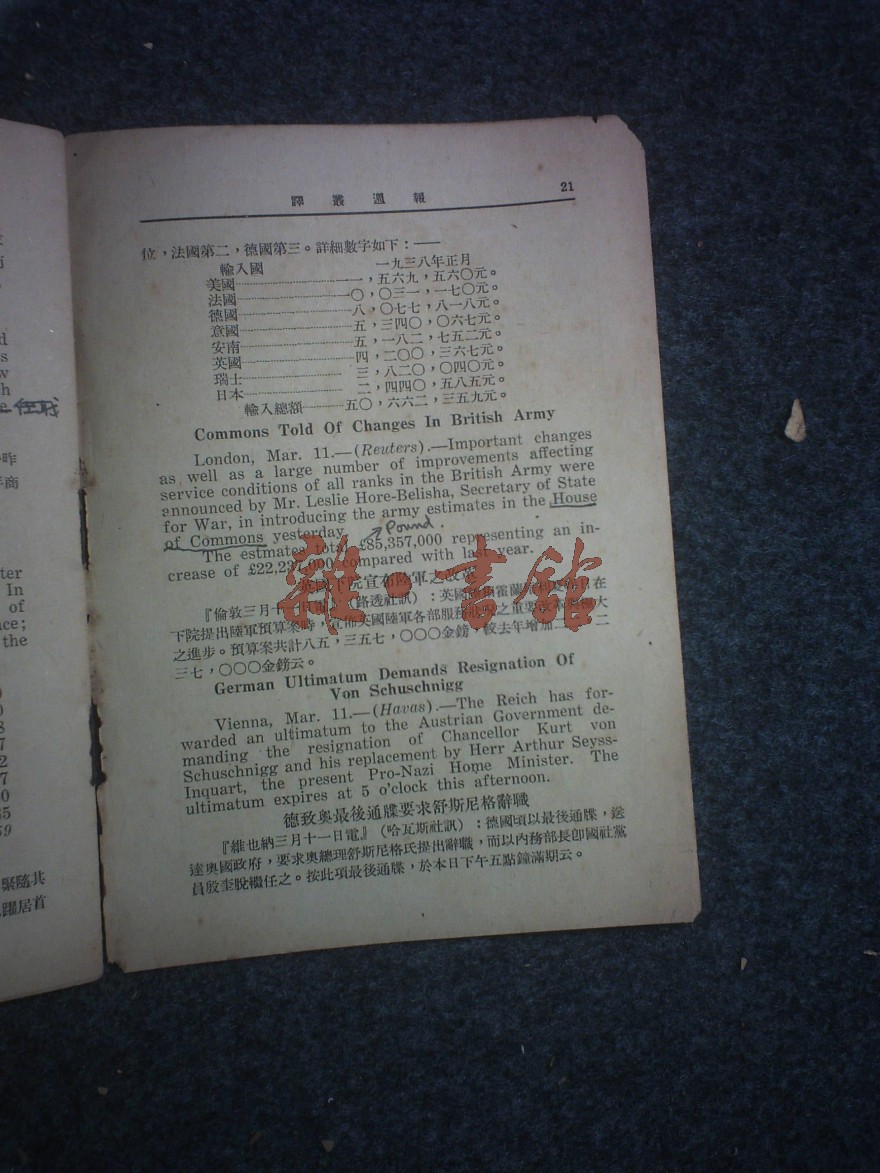 譯叢週報 21
位，法國第二，德國第三。詳細數字如下：——
輸入國 一九三八年正月
美國 一一，五六九，五六〇元。
法國 一〇，〇三一，一七〇元。
德國 八，〇七七，八一八元。
意國 五，三四〇，〇六七元。
安南 五，一八二，七五二元。
英國 四，二〇〇，三六七元。
瑞士 三，八二〇，〇四〇元。
日本 二，四四〇，五八五元。
輸入總額 五〇，六六二，三五九元。
Commons Told Of Changes In British Army
London, Mar. 11.—(Reuters).—Important changes
as well as a large number of improvements affecting
service conditions of all ranks in the British Army were
announced by Mr. Leslie Hore-Belisha, Secretary of State
for War, in introducing the army estimates in the House
of Commons yesterday.
Pound.
The estmates total £85,357,000 representing an in-
crease of £22,237,000 compared with last year.
英國下院宣布陸軍之改革
『倫敦三月十一日電』（路透社訊）：英國 在
下院提出陸軍預算案時，宣佈英國陸軍各部服務 之重要 大
之進步。預算案共計八五，三五七，〇〇〇金鎊，較去年增加二二，二
三七，〇〇〇金鎊云。
German Ultimatum Demands Resignation Of
Von Schuschnigg
Vienna, Mar. 11.—(Havas).—The Reich has for-
warded an ultimatum to the Austrian Government de-
manding the resignation of Chancellor Kurt von
Schuschnigg and his replacement by Herr Arthur Seyss-
Inquart, the present Pro-Nazi Home Minister. The
ultimatum expires at 5 o'clock this afternoon.
德致奧最後通牒要求舒斯尼格辭職
『維也納三月十一日電』（哈瓦斯社訊）：德國頃以最後通牒，送
達奧國政府，要求奧總理舒斯尼格氏提出辭職，而以內務部長卽國社黨
員殷奎脫繼任之。按此項最後通牒，於本日下午五點鐘滿期云。
雜·書館